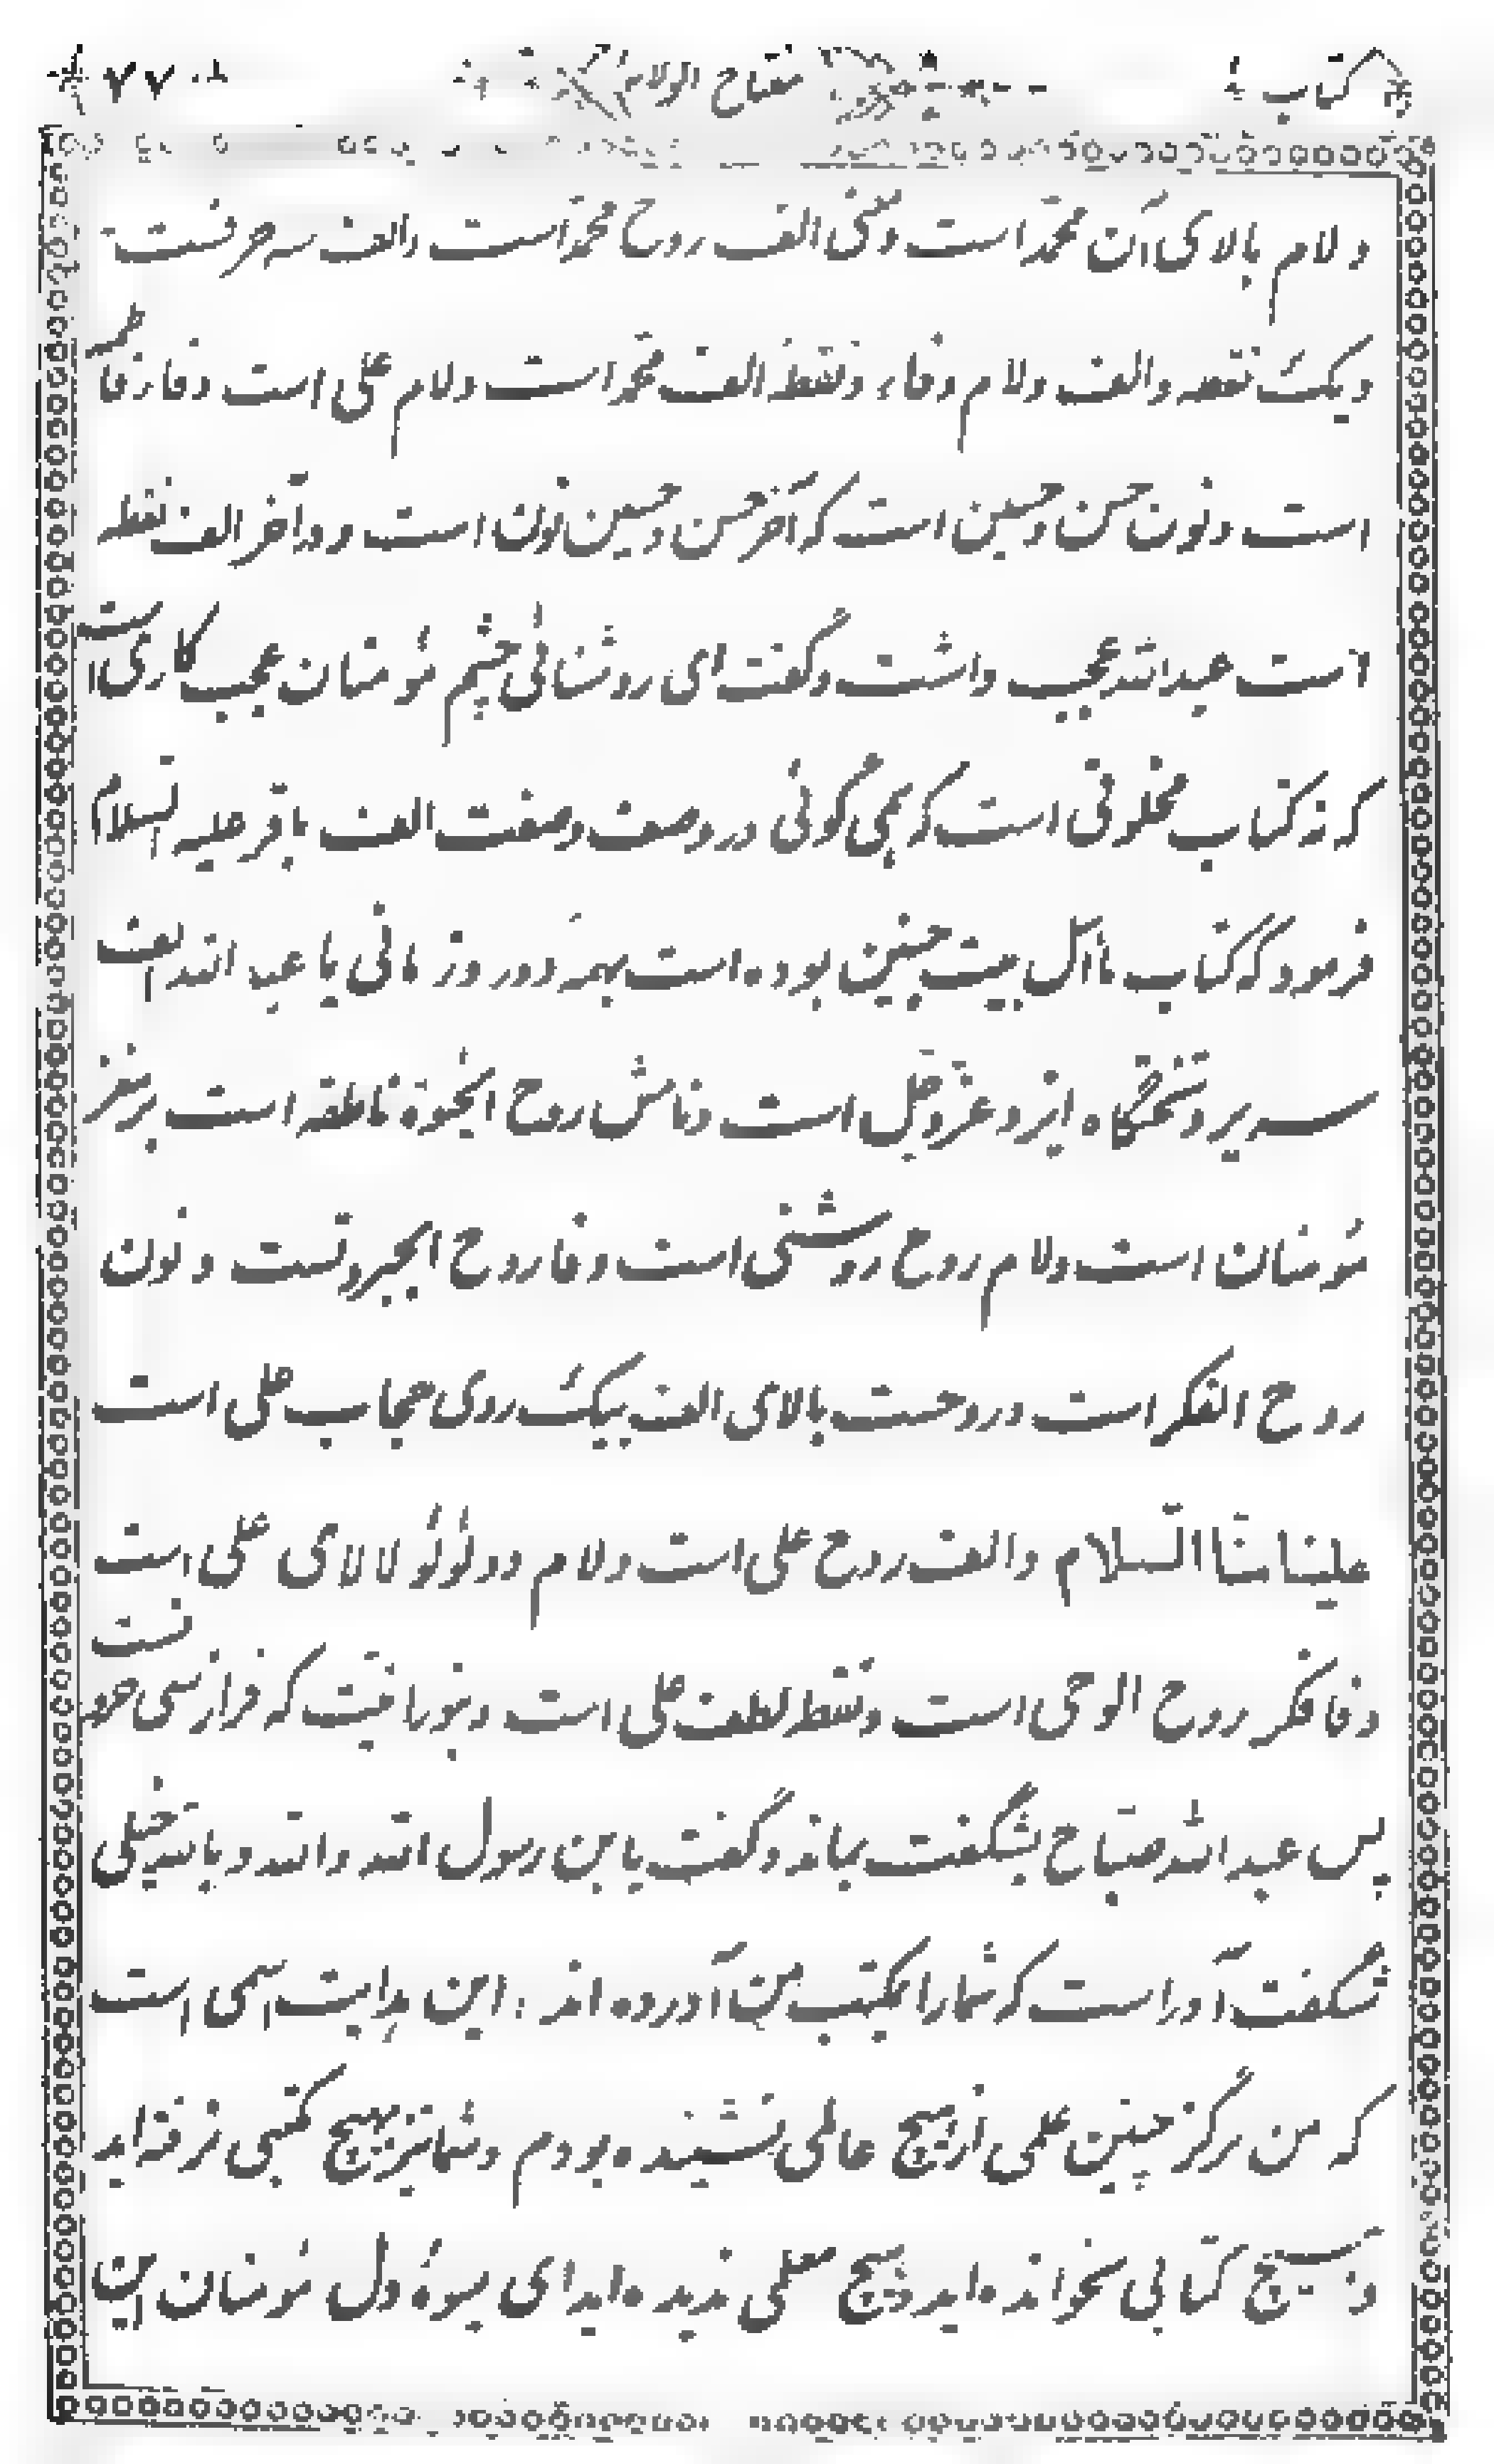 کتاب مفتاح الولام ۷۷
و لام بالای آن محمّد است و معنی الف روح محمّد است و الف سه حرفست
و یک نقطه و الف و لام و فاء، و نقطهٔ الف محمّد است و لام علی است و فاء فاطمه
است و نون حسن و حسین است که آخر حسن و حسین نون است و در آخر الف نقطه
است عبدالله عجب داشت و گفت ای روشنائی چشم مؤمنان عجب کاری است
که نه کتاب مخلوقی است که همی گوئی در وصف و صفت الف باقر علیه السلام
فرمود که کتاب ما اهل بیت چنین بوده است بهمه دور و زمانی یا عبدالله الف
سریر و تختگاه ایزد عزّوجلّ است و نامش روح الحیوة ناطقه است بر مغز
مؤمنان است و لام روح روشنی است و فا روح الجبروتست و نون
روح الفکر است و روحست بالای الف بیک روی حجاب علی است
علینا منّا السّلام و الف روح علی است و لام دو لؤلؤ لالای علی است
و فا فکر روح الوحی است و نقط لطف علی است و بنورانیّت که فراز سی حرفست
پس عبدالله صبّاح بشگفت بماند و گفت یابن رسول الله والله و بالله خیلی
شگفت آور است که شما را بمکتب من آورده اند: این بدایت اسمی است
که من هرگز چنین علمی از هیچ عالمی نشنیده بودم و شما نیز بهیچ مکتبی نرفته اید
و هیچ کتابی نخوانده اید و هیچ معلمی ندیده اید ای میوهٔ دل مؤمنان این